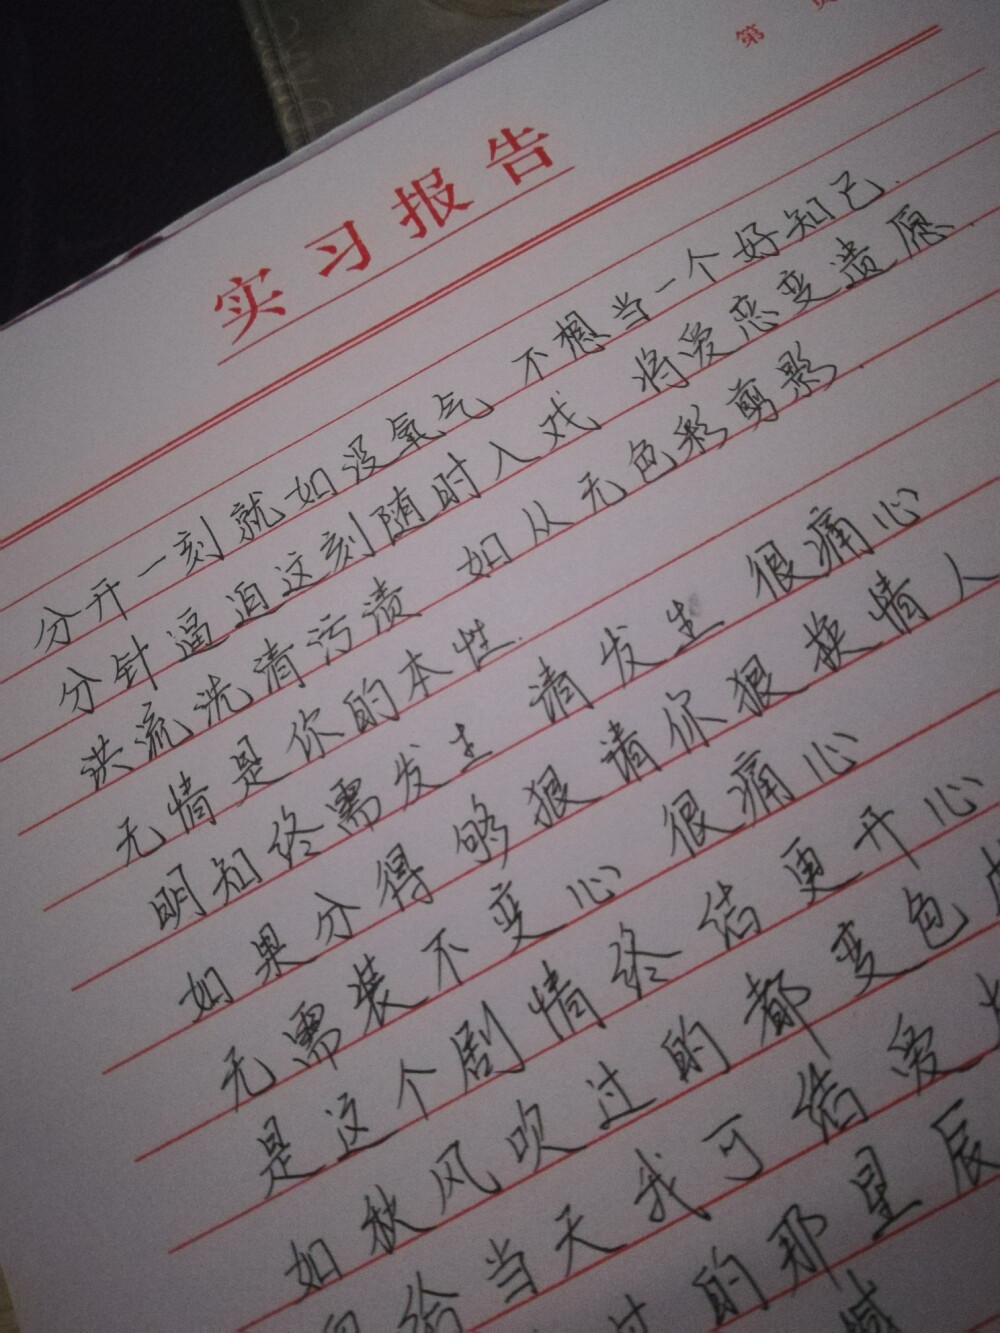 第 页
实习报告
分开一刻就如没氧气 不想当一个好知己.
分针逼迫这刻随时入戏 将爱恋变遗愿.
洪流洗清污渍 如从无色彩剪影.
无情是你的本性.
明知终需发生 请发生 很痛心
如果分得够狠请你狠换情人
无需装不变心 很痛心
是这个剧情终结更开心
如秋风吹过的都变色
给当天我可结爱
过的那星辰